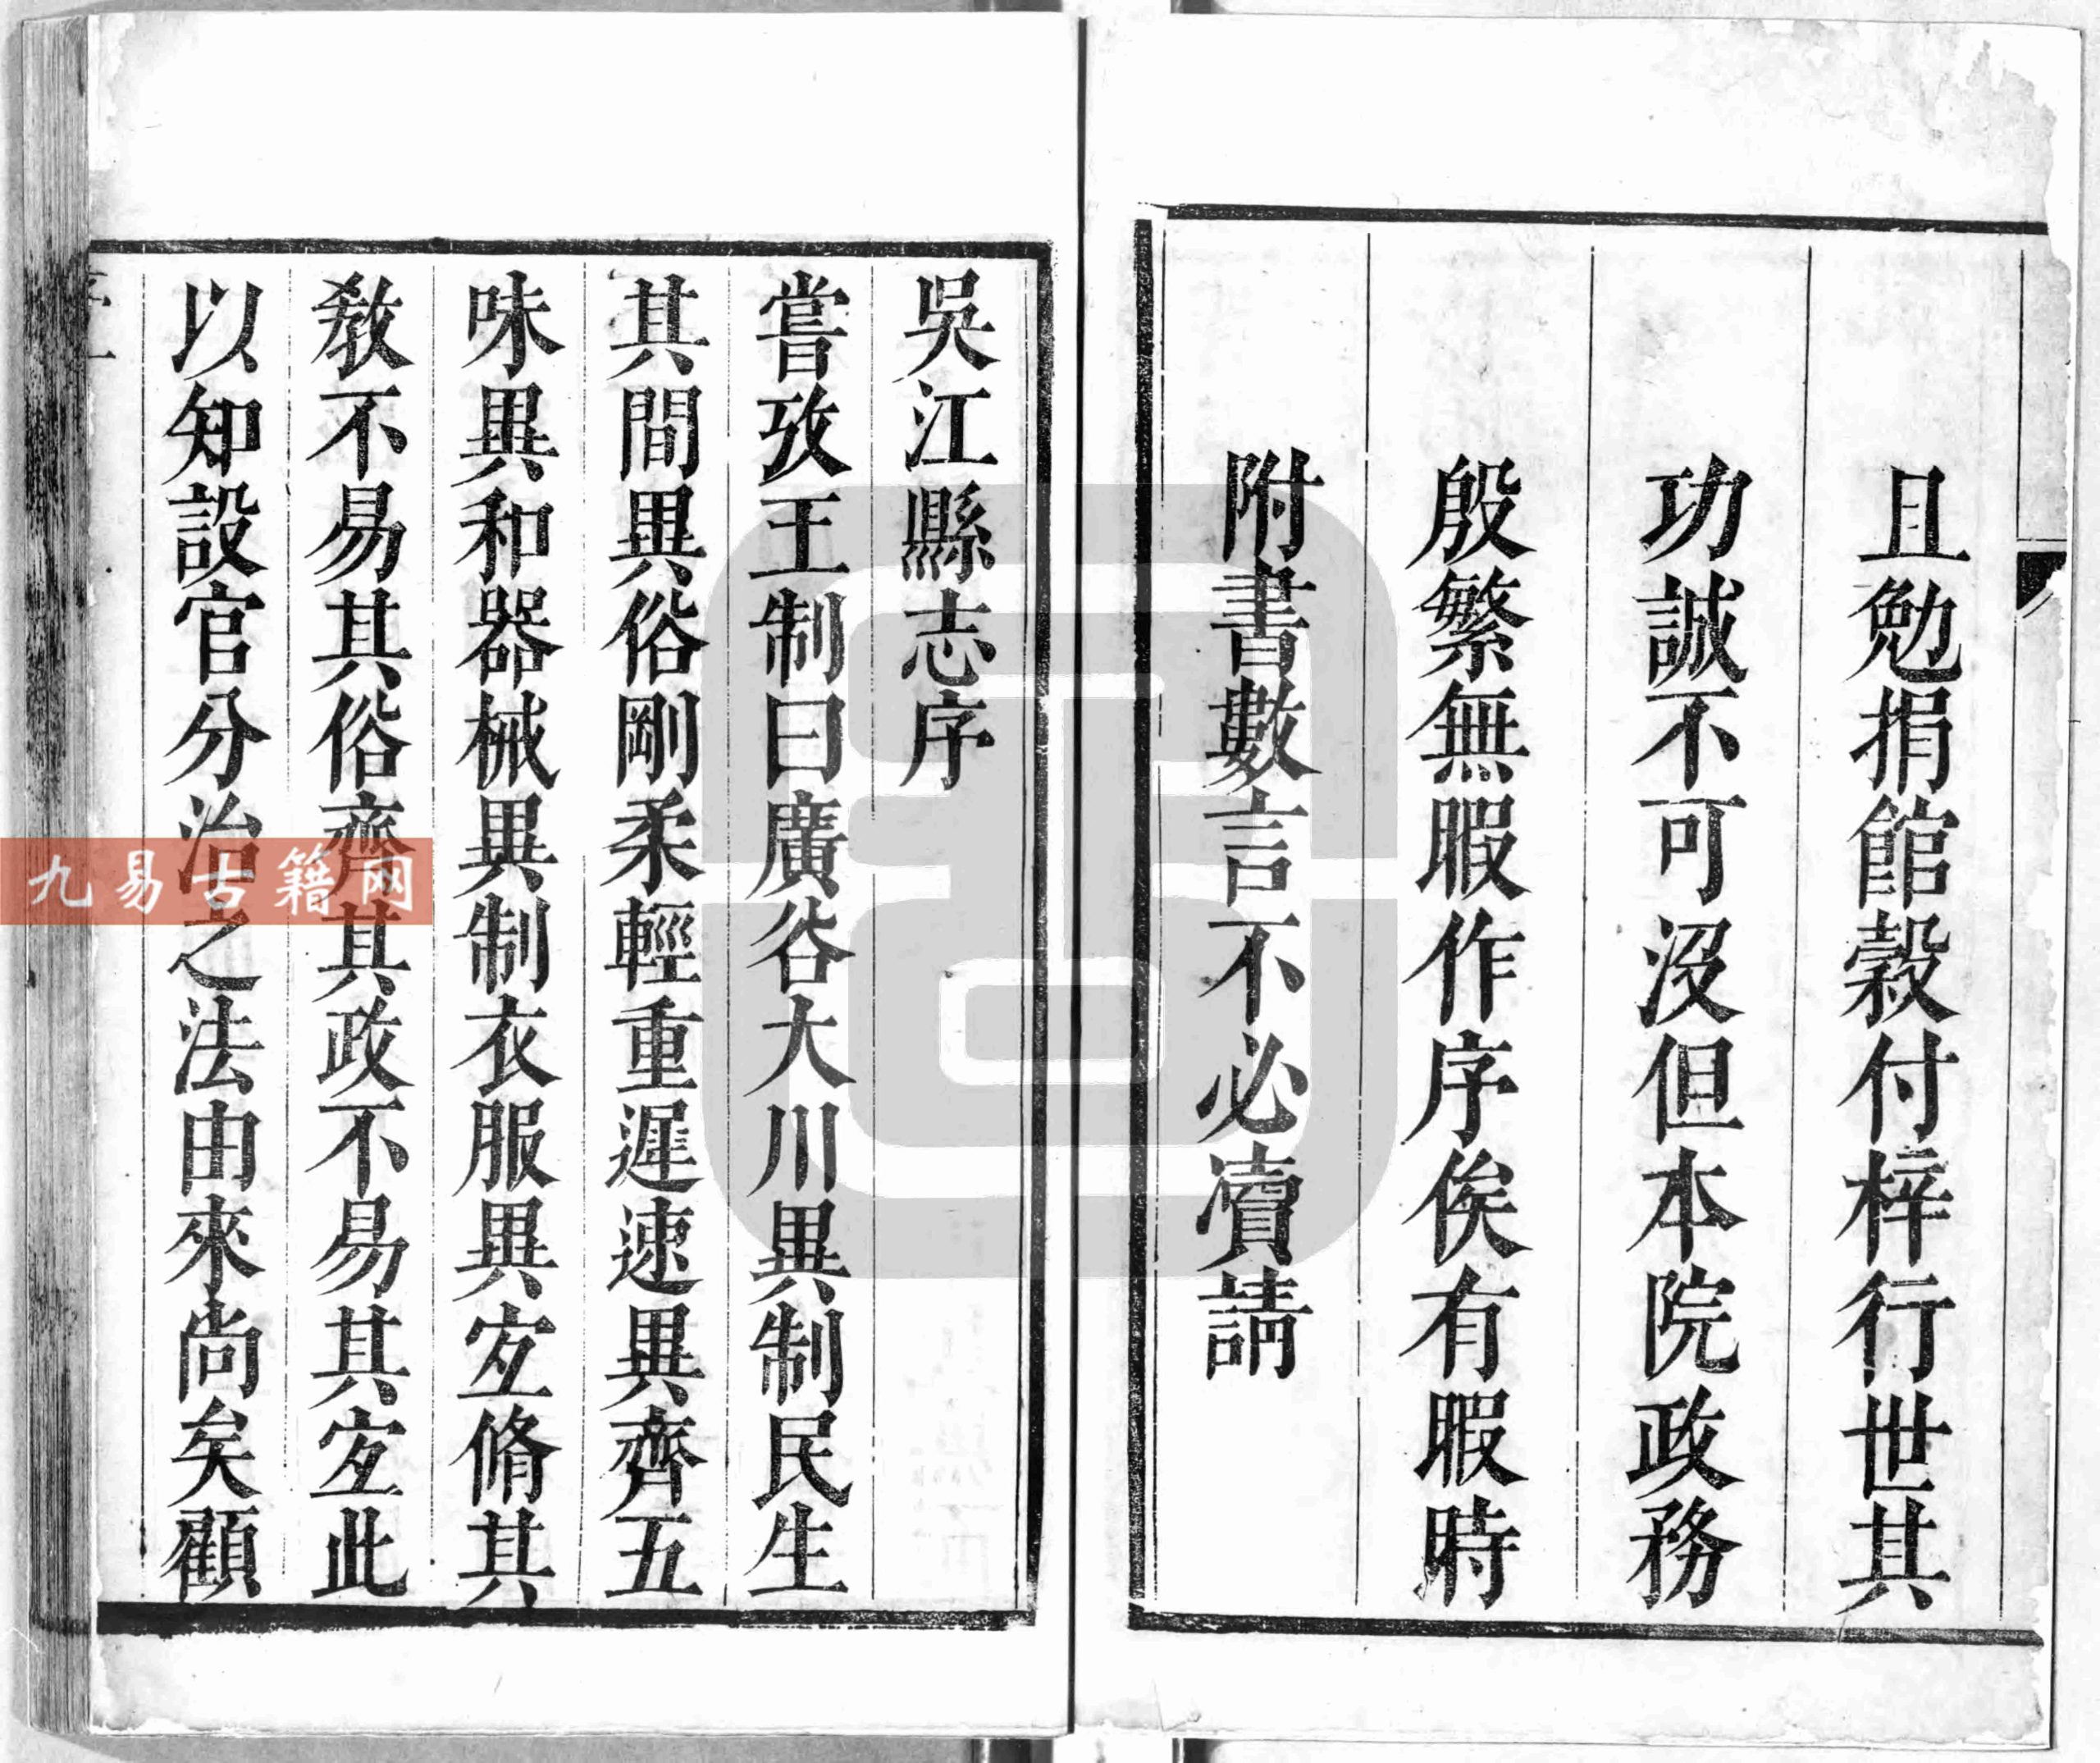 且勉捐館穀付梓行世其
功誠不可沒但本院政務
殷繁無暇作序俟有暇時
附書數言不必瀆請
吳江縣志序
嘗攷王制曰廣谷大川異制民生
其間異俗剛柔輕重遲速異齊五
味異和器械異制衣服異宐脩其
敎不易其俗齊其政不易其宐此
以知設官分治之法由來尚矣顧
九易古籍网